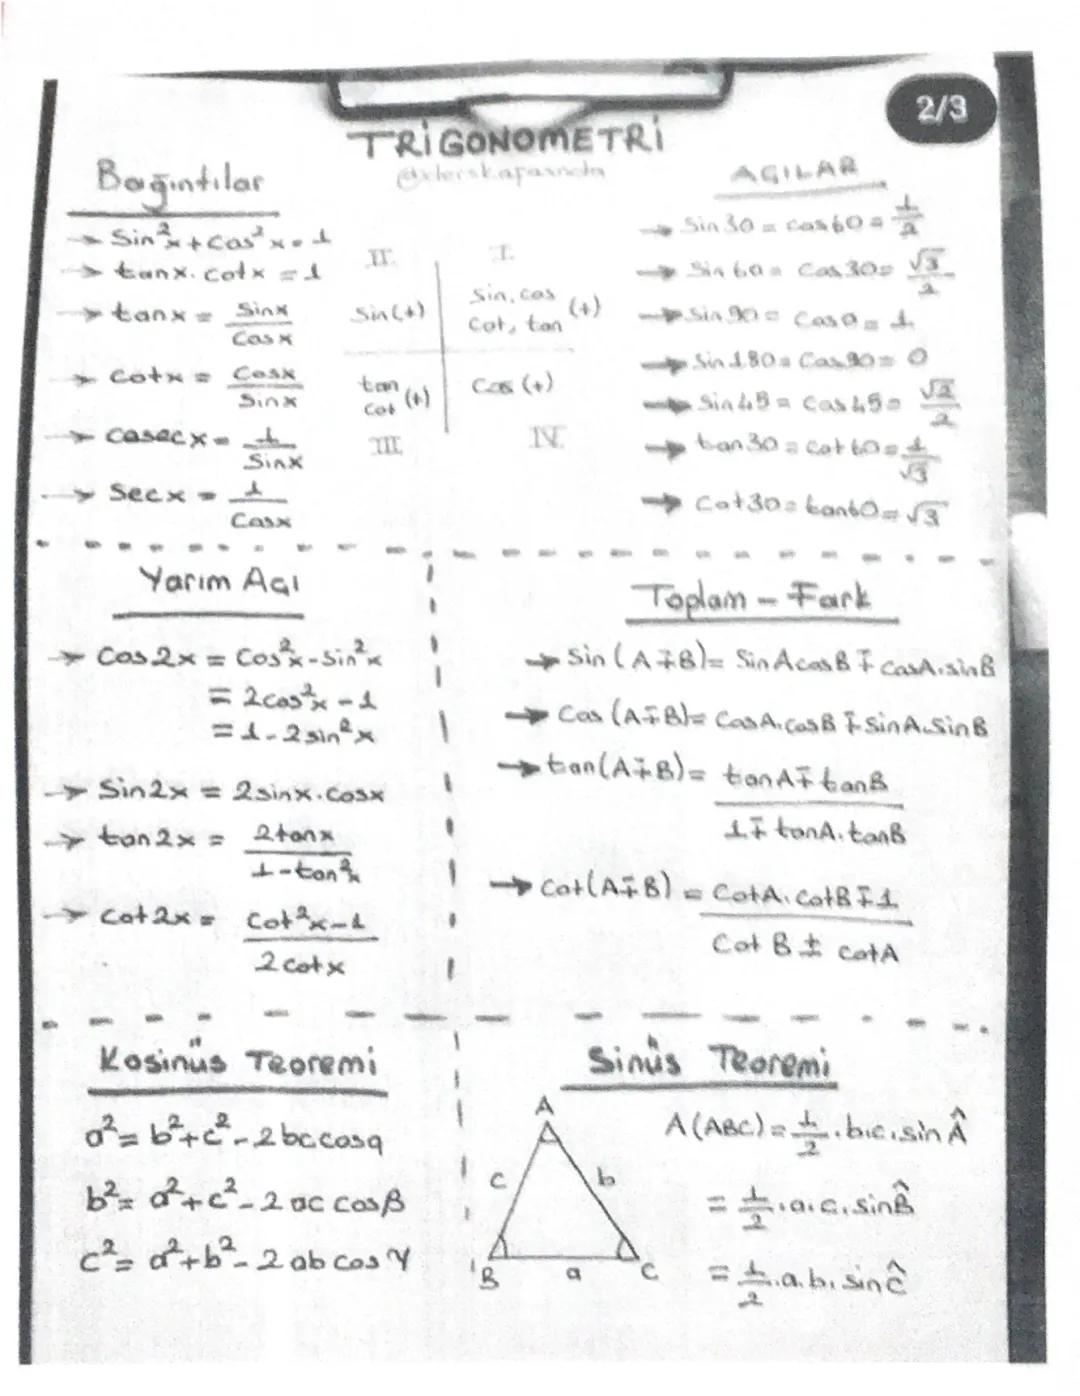 2/3
TRİGONOMETRİ
Bağıntılar
→ Sin²x + Cos²x = 1
→ tanx. cotx = 1
→ tanx = Sinx / Cosx
→ Cotx = Cosx / Sinx
→ Cosecx = 1 / Sinx
→ Secx = 1 / Cosx
II. I.
Sin(+) Sin, cos Cot, tan (+)
tan Cot (+) Cos (+)
III. IV.
AÇILAR
→ Sin30 = cos60 = 1/2
→ Sin60 = Cos30 = √3/2
→ Sin90 = Cos0 = 1
→ Sin180 = Cos90 = 0
→ Sin45 = Cos45 = √2/2
→ tan30 = Cot60 = 1/√3
→ Cot30 = tan60 = √3
Yarım Açı
→ Cos2x = Cos²x - Sin²x
= 2cos²x - 1
= 1 - 2sin²x
→ Sin2x = 2sinx.Cosx
→ tan2x = 2tanx / 1-tan²x
→ Cot2x = Cot²x-1 / 2cotx
Toplam - Fark
→ Sin(A∓B) = SinAcosB ∓ CosA.sinB
→ Cos(A∓B) = CosA.CosB ∓ SinA.SinB
→ tan(A∓B) = tanA ∓ tanB / 1 ∓ tanA.tanB
→ Cot(A∓B) = CotA.CotB ∓ 1 / Cot B ± CotA
Kosinüs Teoremi
a² = b² + c² - 2bc cosα
b² = a² + c² - 2ac cosβ
c² = a² + b² - 2ab cos γ
Sinüs Teoremi
A
c b
B a C
A(ABC) = 1/2 . b.c.sin Â
= 1/2 .a.c.sin B̂
= 1/2 .a.b.sin Ĉ